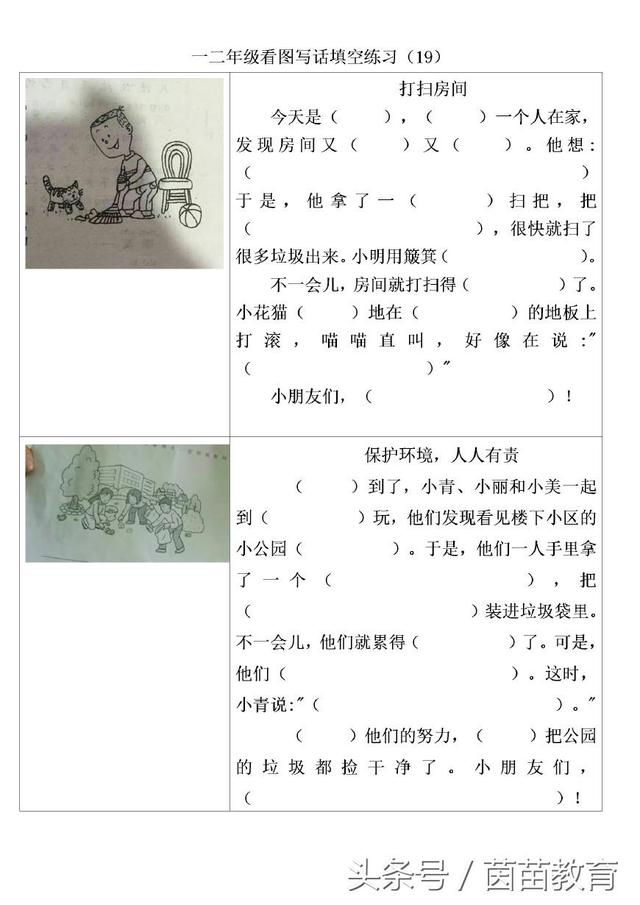 一二年级看图写话填空练习（19）
打扫房间
今天是（　　），（　　）一个人在家，
发现房间又（　　）又（　　）。他想：
（　　　　　　　　　　　　　　）
于是，他拿了一（　　　）扫把，把
（　　　　　　　　　　），很快就扫了
很多垃圾出来。小明用簸箕（　　　　　　）。
不一会儿，房间就打扫得（　　　　）了。
小花猫（　　）地在（　　　　）的地板上
打滚，喵喵直叫，好像在说："
（　　　　　　　　）"
小朋友们，（　　　　　　　　）！
保护环境，人人有责
（　　）到了，小青、小丽和小美一起
到（　　　　）玩，他们发现看见楼下小区的
小公园（　　　　　）。于是，他们一人手里拿
了一个（　　　　　　　　），把
（　　　　　　　　　　）装进垃圾袋里。
不一会儿，他们就累得（　　　　）了。可是，
他们（　　　　　　　　　　）。这时，
小青说："（　　　　　　　　　　）。"
（　　）他们的努力，（　　）把公园
的垃圾都捡干净了。小朋友们，
（　　　　　　　　　　　　　）！
头条号／茵苗教育